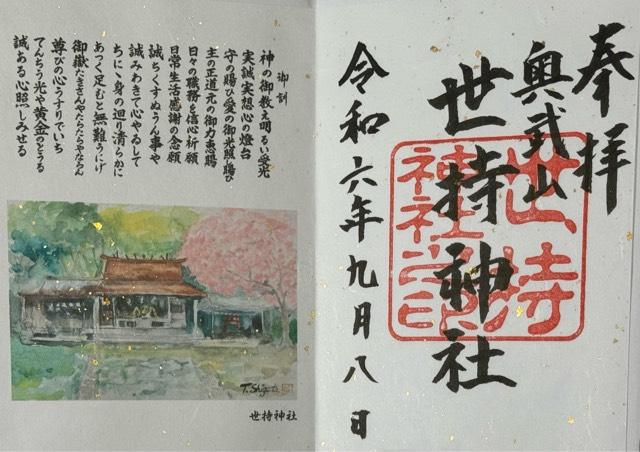 奉拝
奥武山
世持神社
世持
神社
之印
令和六年九月八日
御訓
神の御教え明るい受光
実誠実想心の燈台
守の賜ひ愛の御光照し賜ひ
主の正道元の御力恵賜
日々の職務を信心祈願
日常生活感謝の念願
誠ちくすぬうん事や
誠みわきて心やゐして
ちにゝ身の廻り清らかに
あつく足むと無難うにげ
御嶽たきさんやたらたらやならん
尊びの心うすりでいち
てんちう光や黄金のとうる
誠ある心照しみせる
T.Shigeta
世持神社